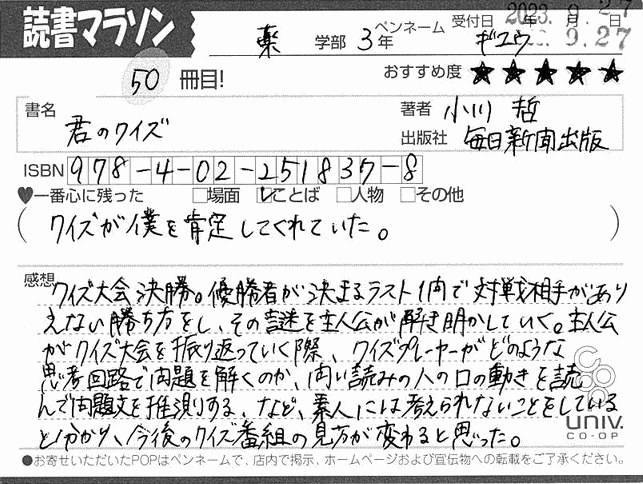 読書マラソン
薬 学部 3年 ペンネーム ギユウ 受付日 2023年9月27日
3.9.27
50 冊目! おすすめ度 ★★★★★
書名 君のクイズ
著者 小川 哲
出版社 毎日新聞出版
ISBN 978-4-02-251837-8
♥一番心に残った □場面 ☑ことば □人物 □その他
(クイズが僕を肯定してくれていた。)
感想
クイズ大会決勝。優勝者が決まるラスト1問で対戦相手があり
えない勝ち方をし、その謎を主人公が解き明かしていく。主人公
がクイズ大会を振り返っていく際、クイズプレーヤーがどのような
思考回路で問題を解くのか、問い読みの人の口の動きを読
んで問題文を推測する、など、素人には考えられないことをしている
と分かり、今後のクイズ番組の見方が変わると思った。
CO OP
UNIV.
CO-OP
●お寄せいただいたPOPはペンネームで、店内で掲示、ホームページおよび宣伝物への転載をご了承ください。